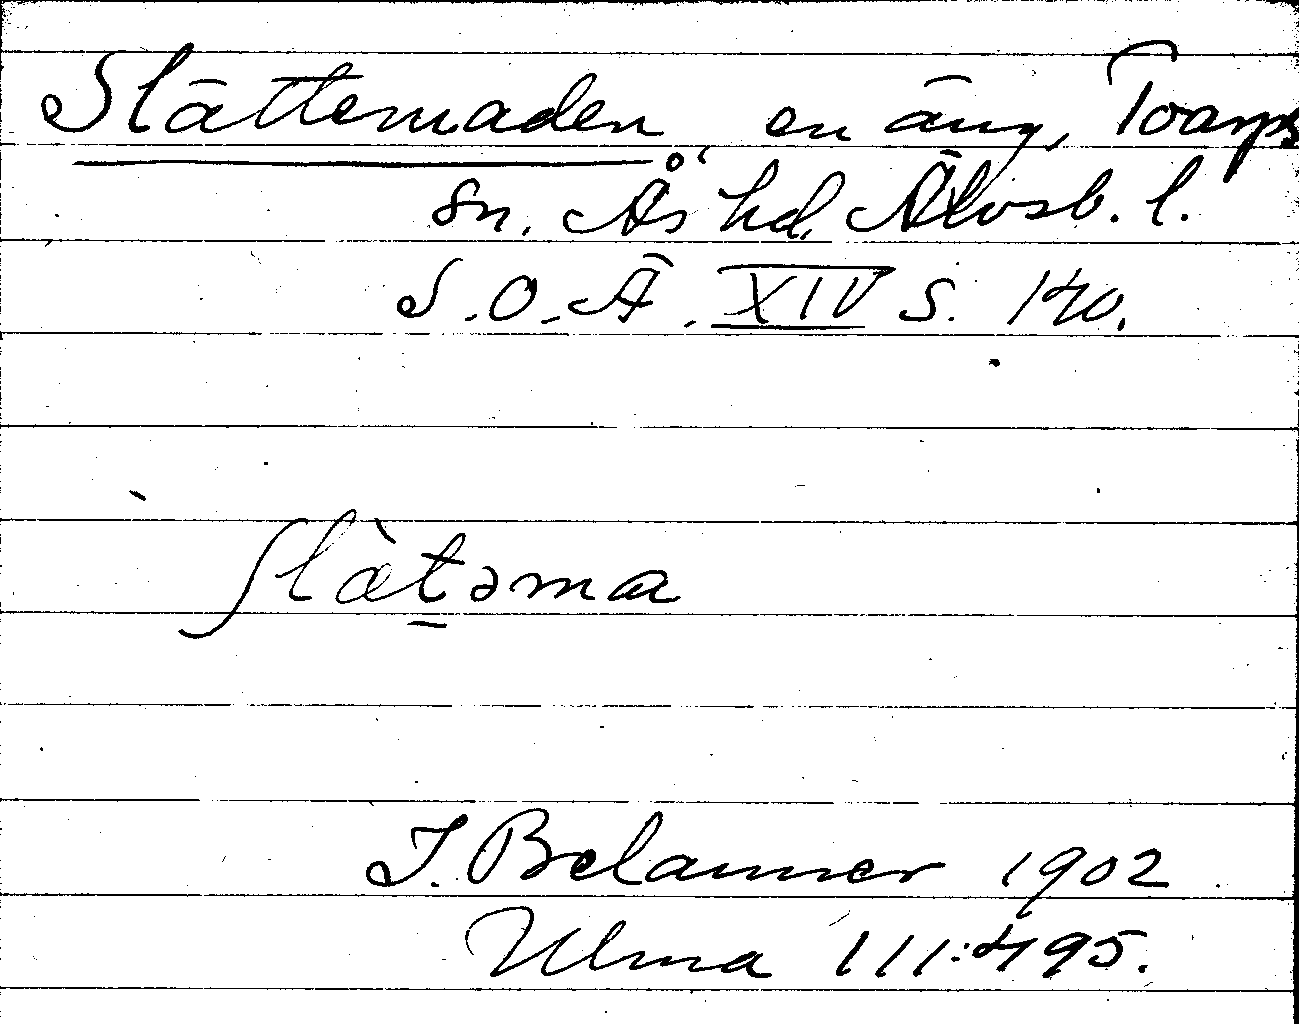 Slättemaden, en äng, Toarps
sn. Ås hd, Älvsb. l.
S.O.Ä. XIV S. 140.
slὰtəma
I. Belanner 1902
Ulma 111:495.